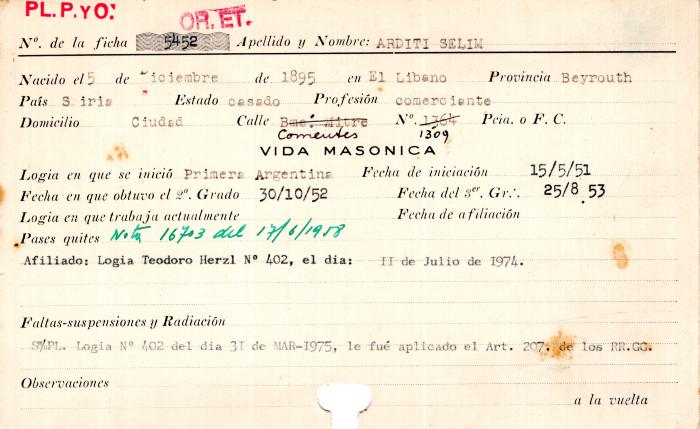 PL.P.YO:
OR.ET.
Nº. de la ficha 5452 Apellido y Nombre: ARDITI SELIM
Nacido el 5 de Diciembre de 1895 en El Libano Provincia Beyrouth
País Siria Estado casado Profesión comerciante
Domicilio Ciudad Calle Bmé. Mitre Nº. 1364 Pcia. o F. C.
Corrientes 1309
VIDA MASONICA
Logia en que se inició Primera Argentina Fecha de iniciación 15/5/51
Fecha en que obtuvo el 2º. Grado 30/10/52 Fecha del 3er. Gr∴. 25/8.53
Logia en que trabaja actualmente Fecha de afiliación
Pases quites Nota 16703 del 17/6/1958
Afiliado: Logia Teodoro Herzl Nº 402, el dia: II de Julio de 1974.
Faltas-suspensiones y Radiación
S/PL. Logia Nº 402 del dia 3I de MAR-1975, le fué aplicado el Art. 207. de los RR.GG.
Observaciones
a la vuelta